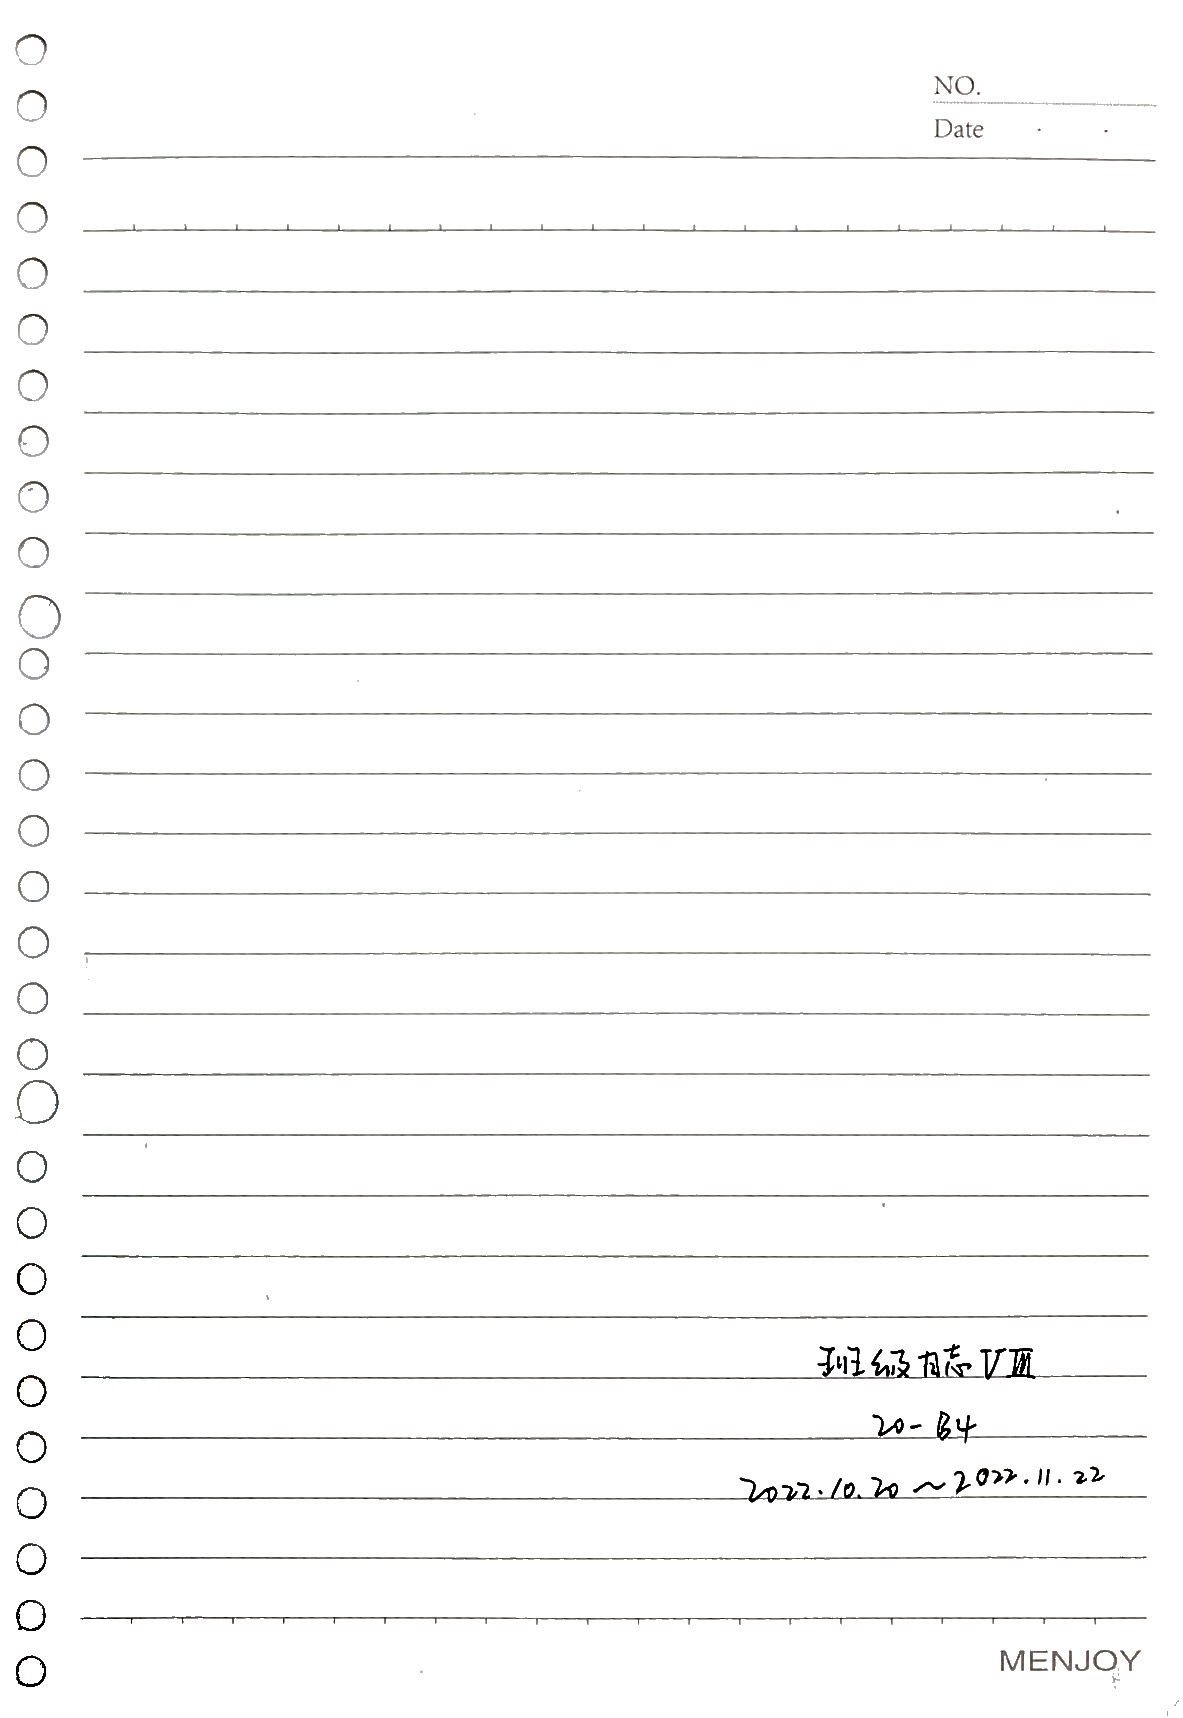 NO.
Date · ·
班级月志VIII
20-B4
2022.10.20～2022.11.22
MENJOY